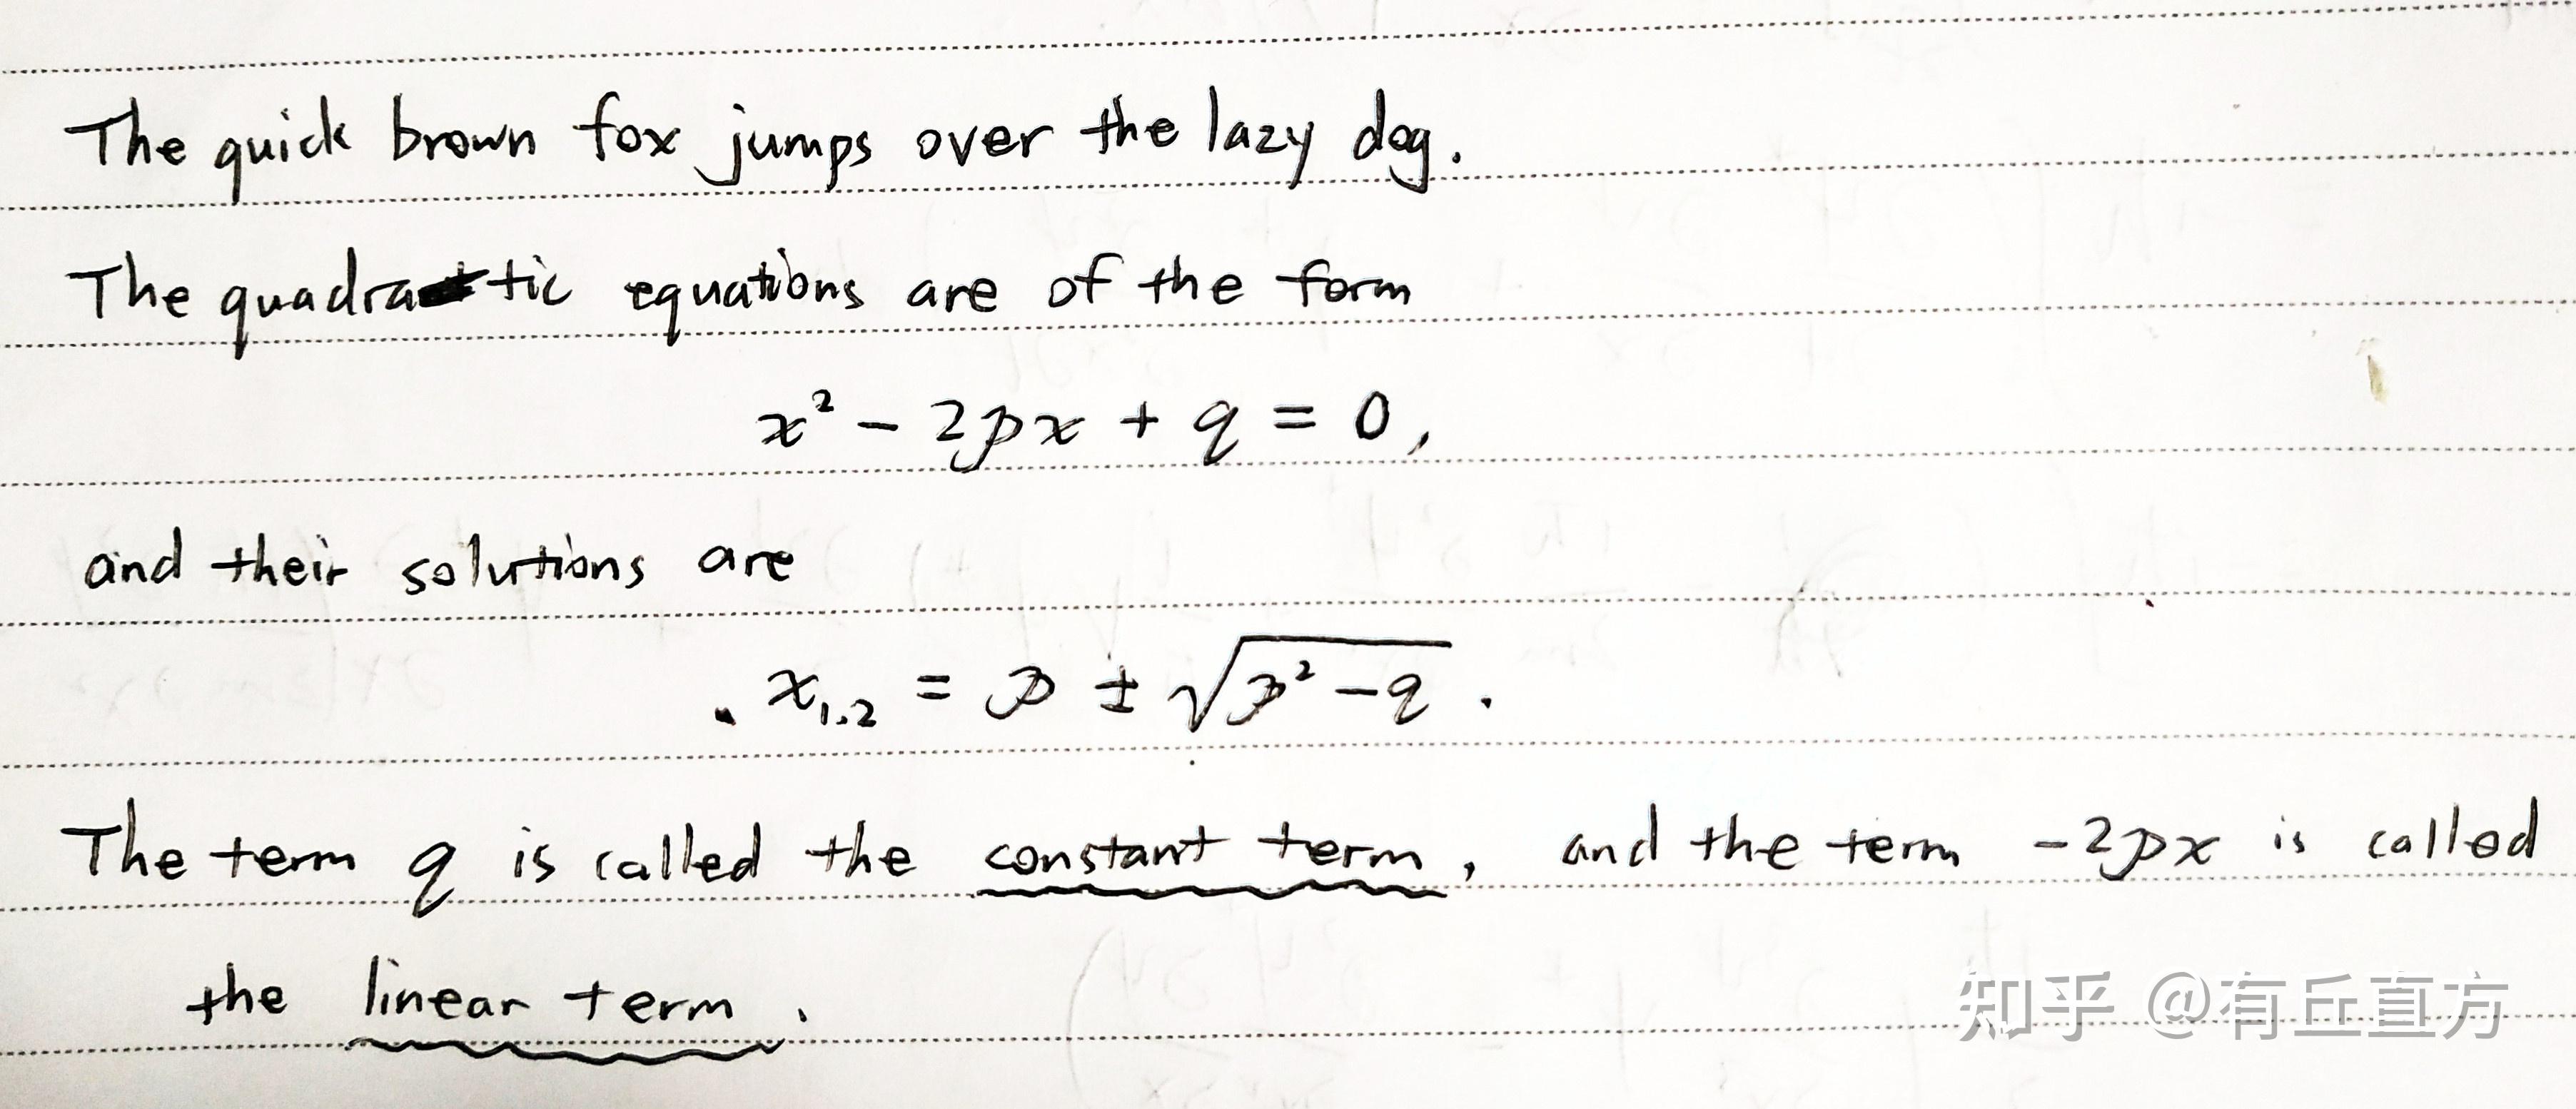 The quick brown fox jumps over the lazy dog.
The quadratic equations are of the form
x² − 2px + q = 0,
and their solutions are
x₁,₂ = p ± √(p² − q).
The term q is called the constant term, and the term −2px is called
the linear term.
知乎 @有丘直方